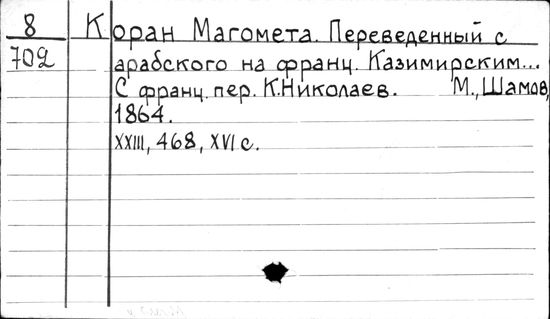 8
702
Коран Магомета. Переведенный с
арабского на франц. Казимирским...
С франц. пер. К.Николаев. М., Шамов,
1864.
XXIII, 468, XVI с.